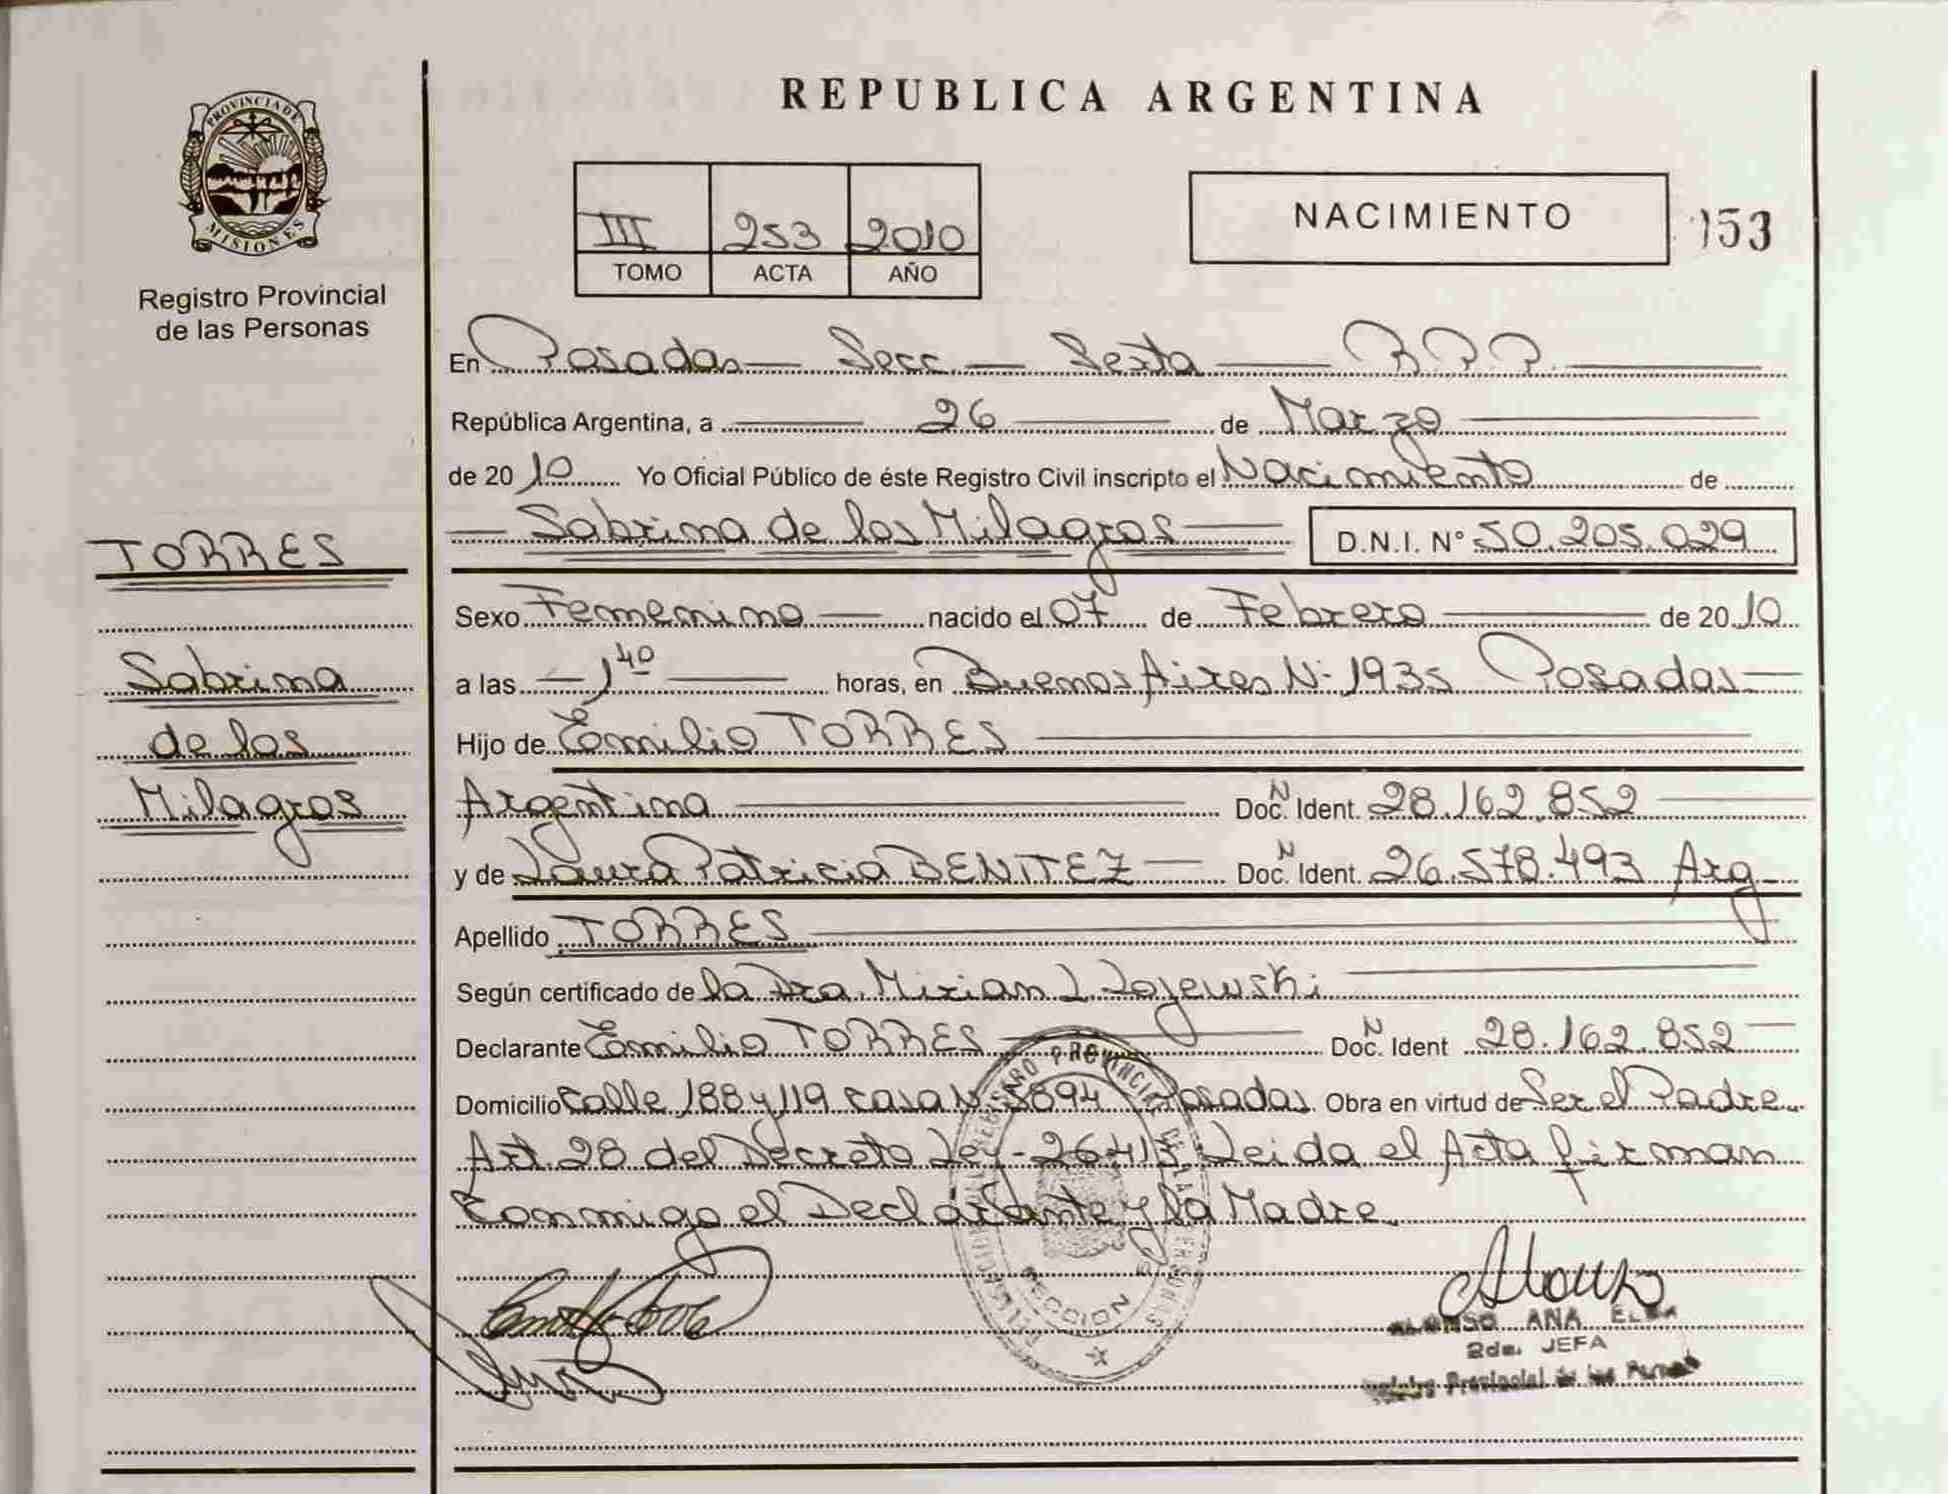 REPUBLICA ARGENTINA
PROVINCIA DE
MISIONES
Registro Provincial
de las Personas
III 253 2010
TOMO ACTA AÑO
NACIMIENTO
153
En Posadas Secc. Sexta R.P.P.
República Argentina, a 26 de Marzo
de 2010 Yo Oficial Público de éste Registro Civil inscripto el Nacimiento de
Sabrina de los Milagros D.N.I. N° 50.205.029
TORRES
Sabrina
de los
Milagros
Sexo Femenino nacido el 07 de Febrero de 2010
a las 1 40 horas, en Buenos Aires N- 1935 Posadas
Hijo de Emilio TORRES
Argentina Doc. N Ident. 28.162.852
y de Laura Patricia BENITEZ Doc. N Ident. 26.578.493 Arg
Apellido TORRES
Según certificado de la Dra. Mirian
Declarante Emilio TORRES Doc. N Ident 28.162.852
Domicilio Calle 188 y 119 casa N- 5894 Posadas. Obra en virtud de Ser el Padre
Art. 28 del Decreto Ley-26413 Leida el Acta firman
Conmigo el Declarante y la Madre
REGISTRO PROVINCIAL DE LAS PERSONAS
SECCION
ALONSO ANA
2da. JEFA
Provincial de las